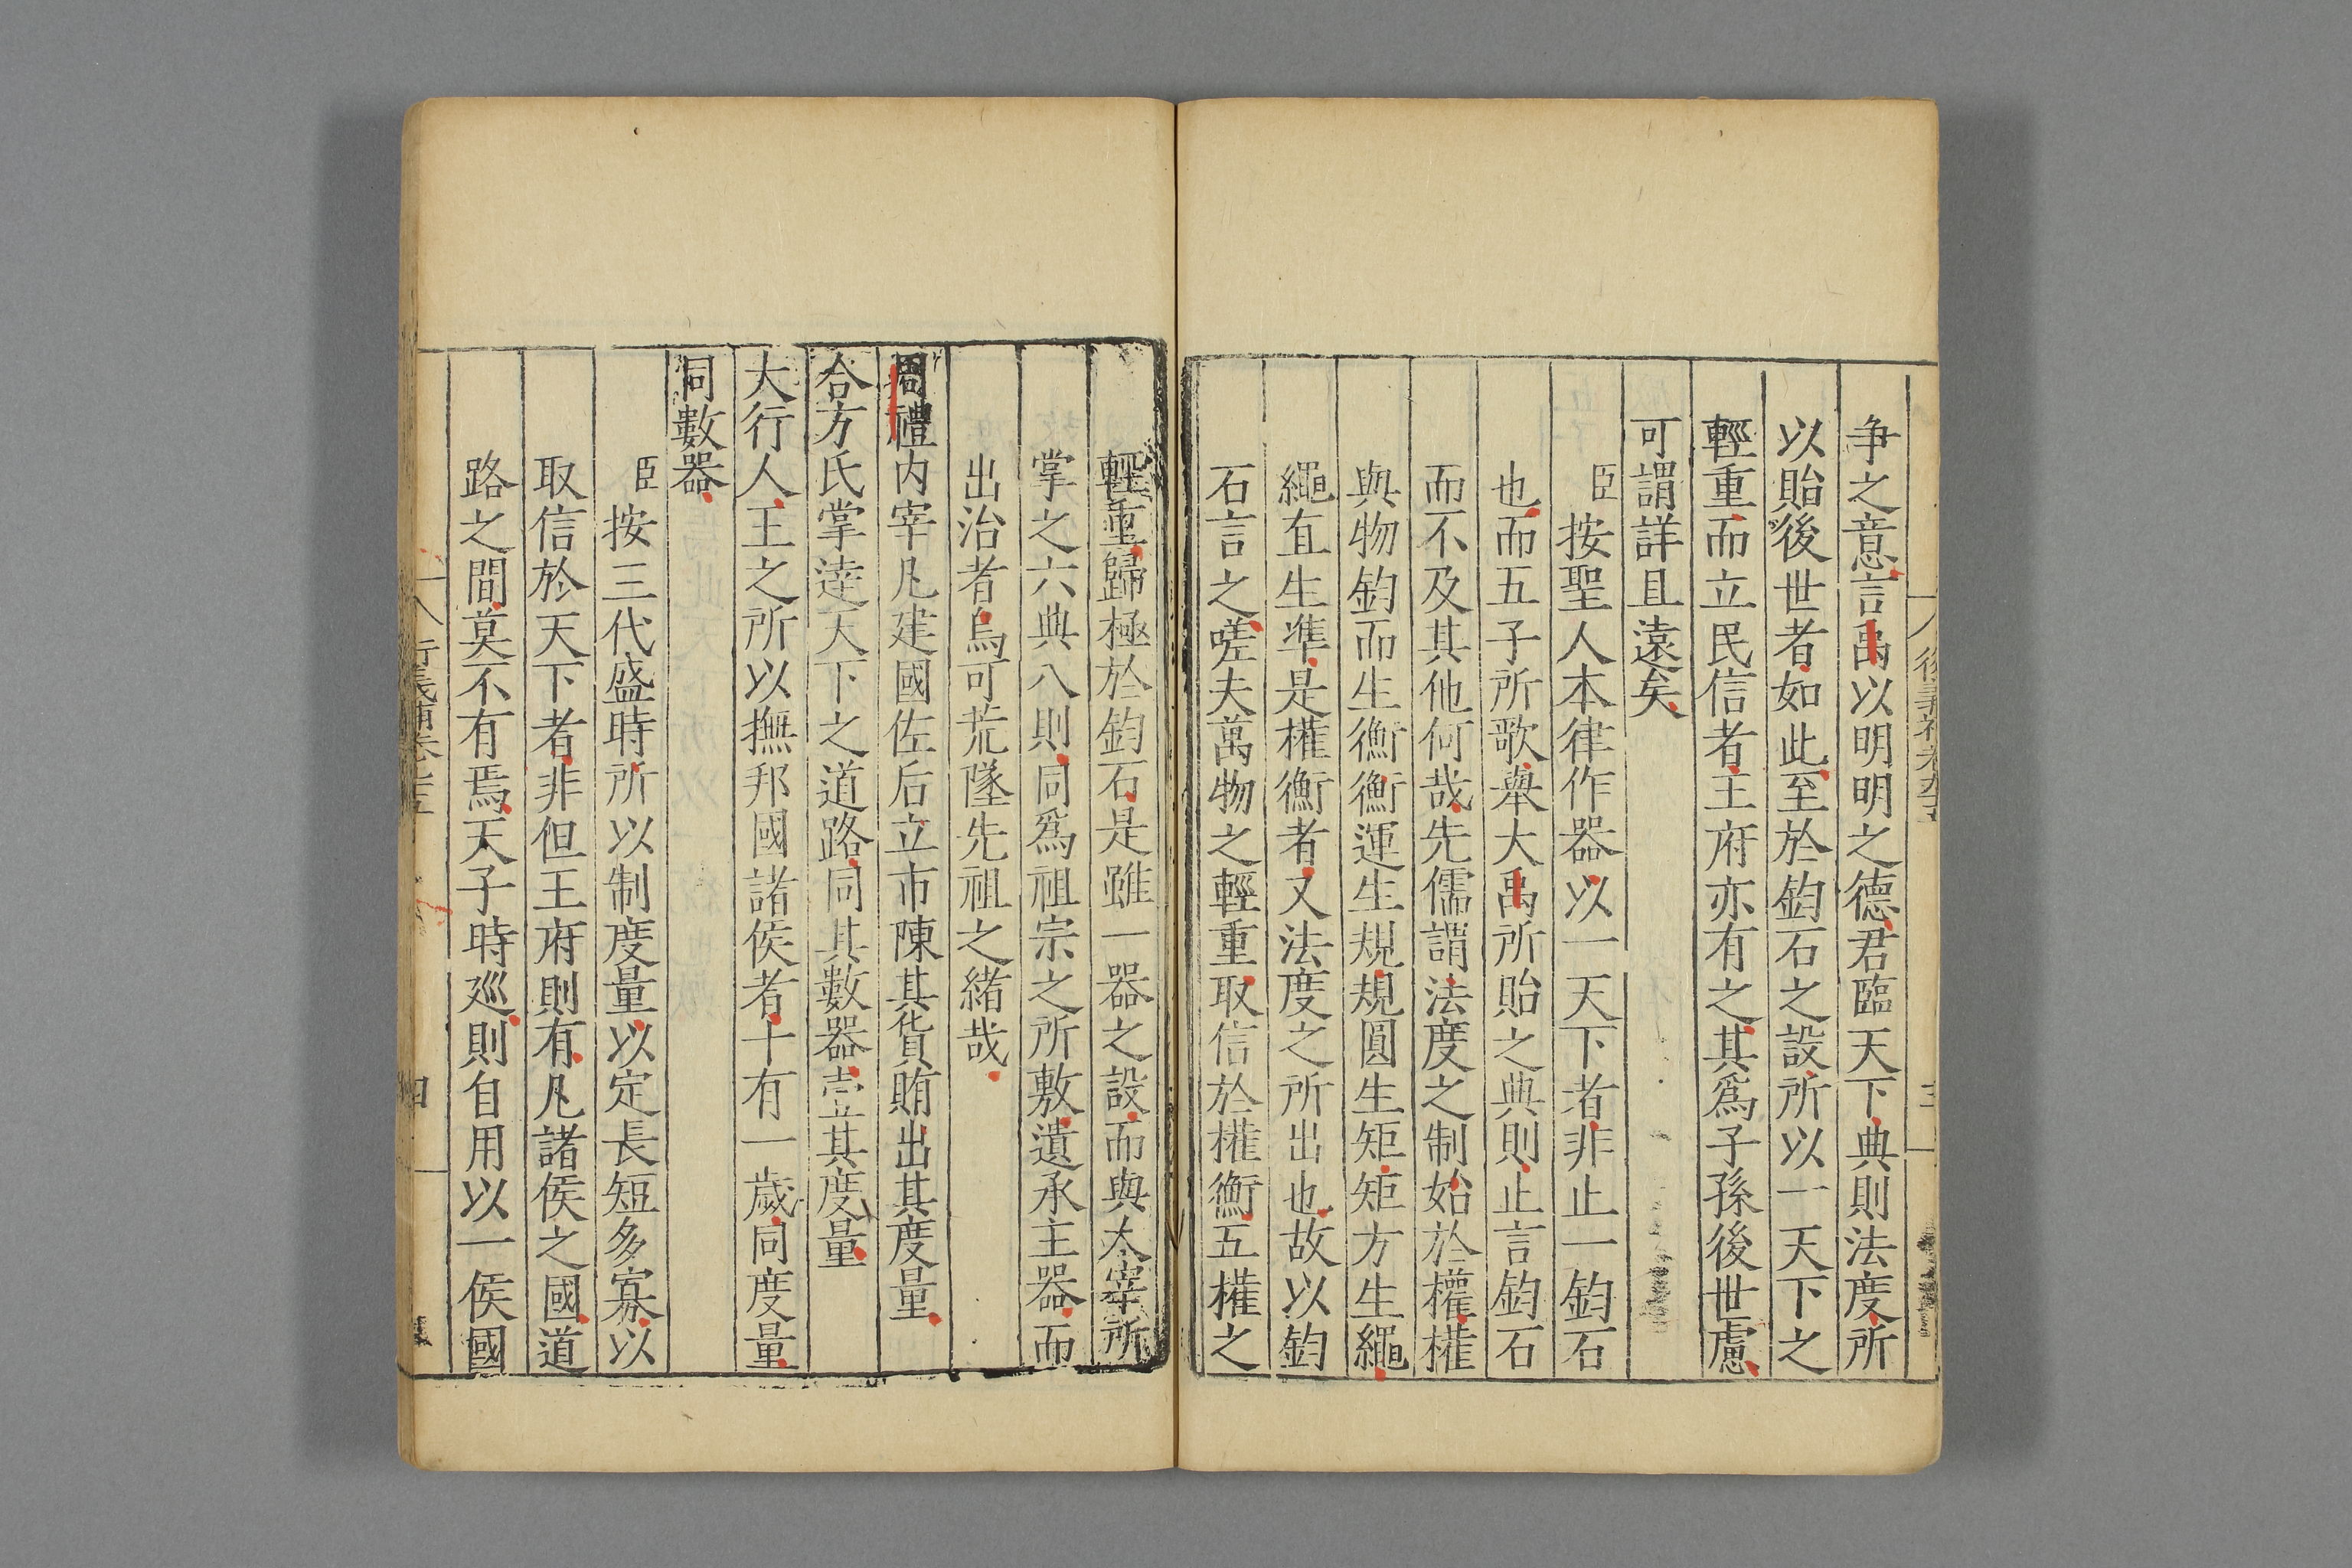 争之意言禹以明明之德君臨天下典則法度所
以貽後世者如此至於鈞石之設所以一天下之
輕重而立民信者王府亦有之其爲子孫後世慮
可謂詳且遠矣
臣按聖人本律作器以一天下者非止一鈞石
也而五子所歌舉大禹所貽之典則止言鈞石
而不及其他何哉先儒謂法度之制始於權權
與物鈞而生衡衡運生規規圓生矩矩方生繩
繩直生準是權衡者又法度之所出也故以鈞
石言之嗟夫萬物之輕重取信於權衡五權之
輕重歸極於鈞石是雖一器之設而與太宰所
掌之六典八則同爲祖宗之所敷遺承主器而
出治者烏可荒墜先祖之緒哉
周禮内宰凡建國佐后立市陳其貨賄出其度量
合方氏掌逹天下之道路同其數器壹其度量
大行人王之所以撫邦國諸侯者十有一歲同度量
同數器
臣按三代盛時所以制度量以定長短多寡以
取信於天下者非但王府則有凡諸侯之國道
路之間莫不有焉天子時廵則自用以一侯國